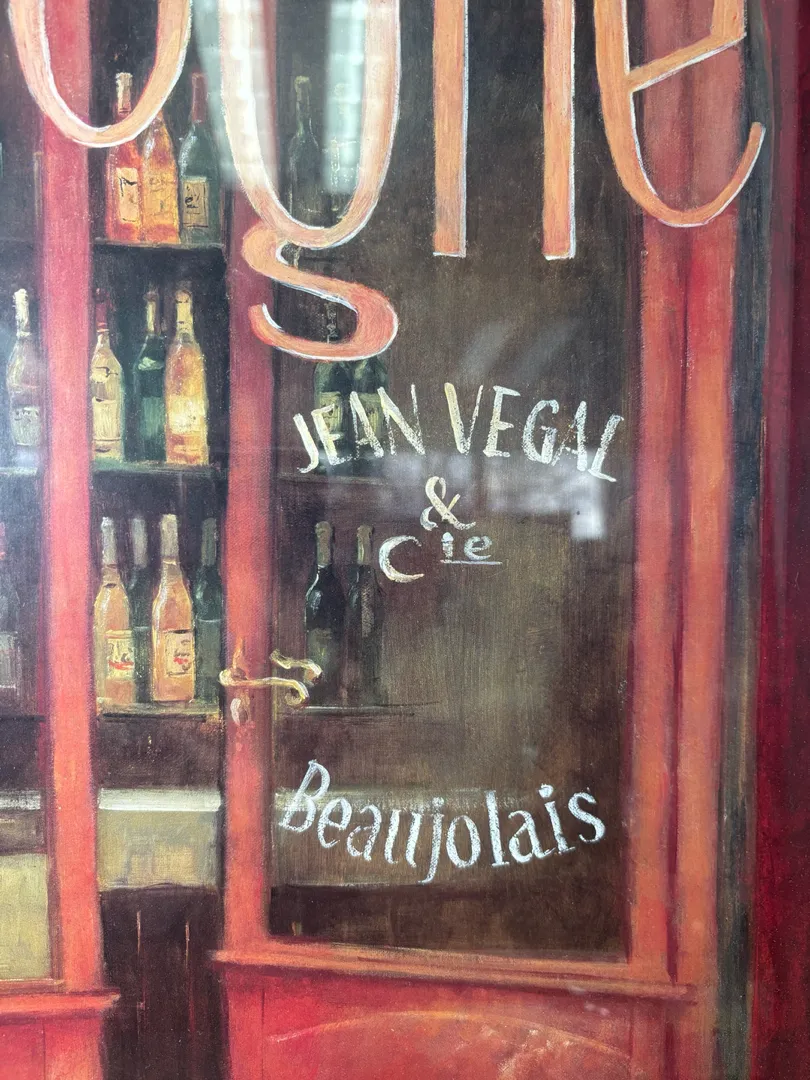 ogne
JEAN VEGAL
&
Cie
Beaujolais